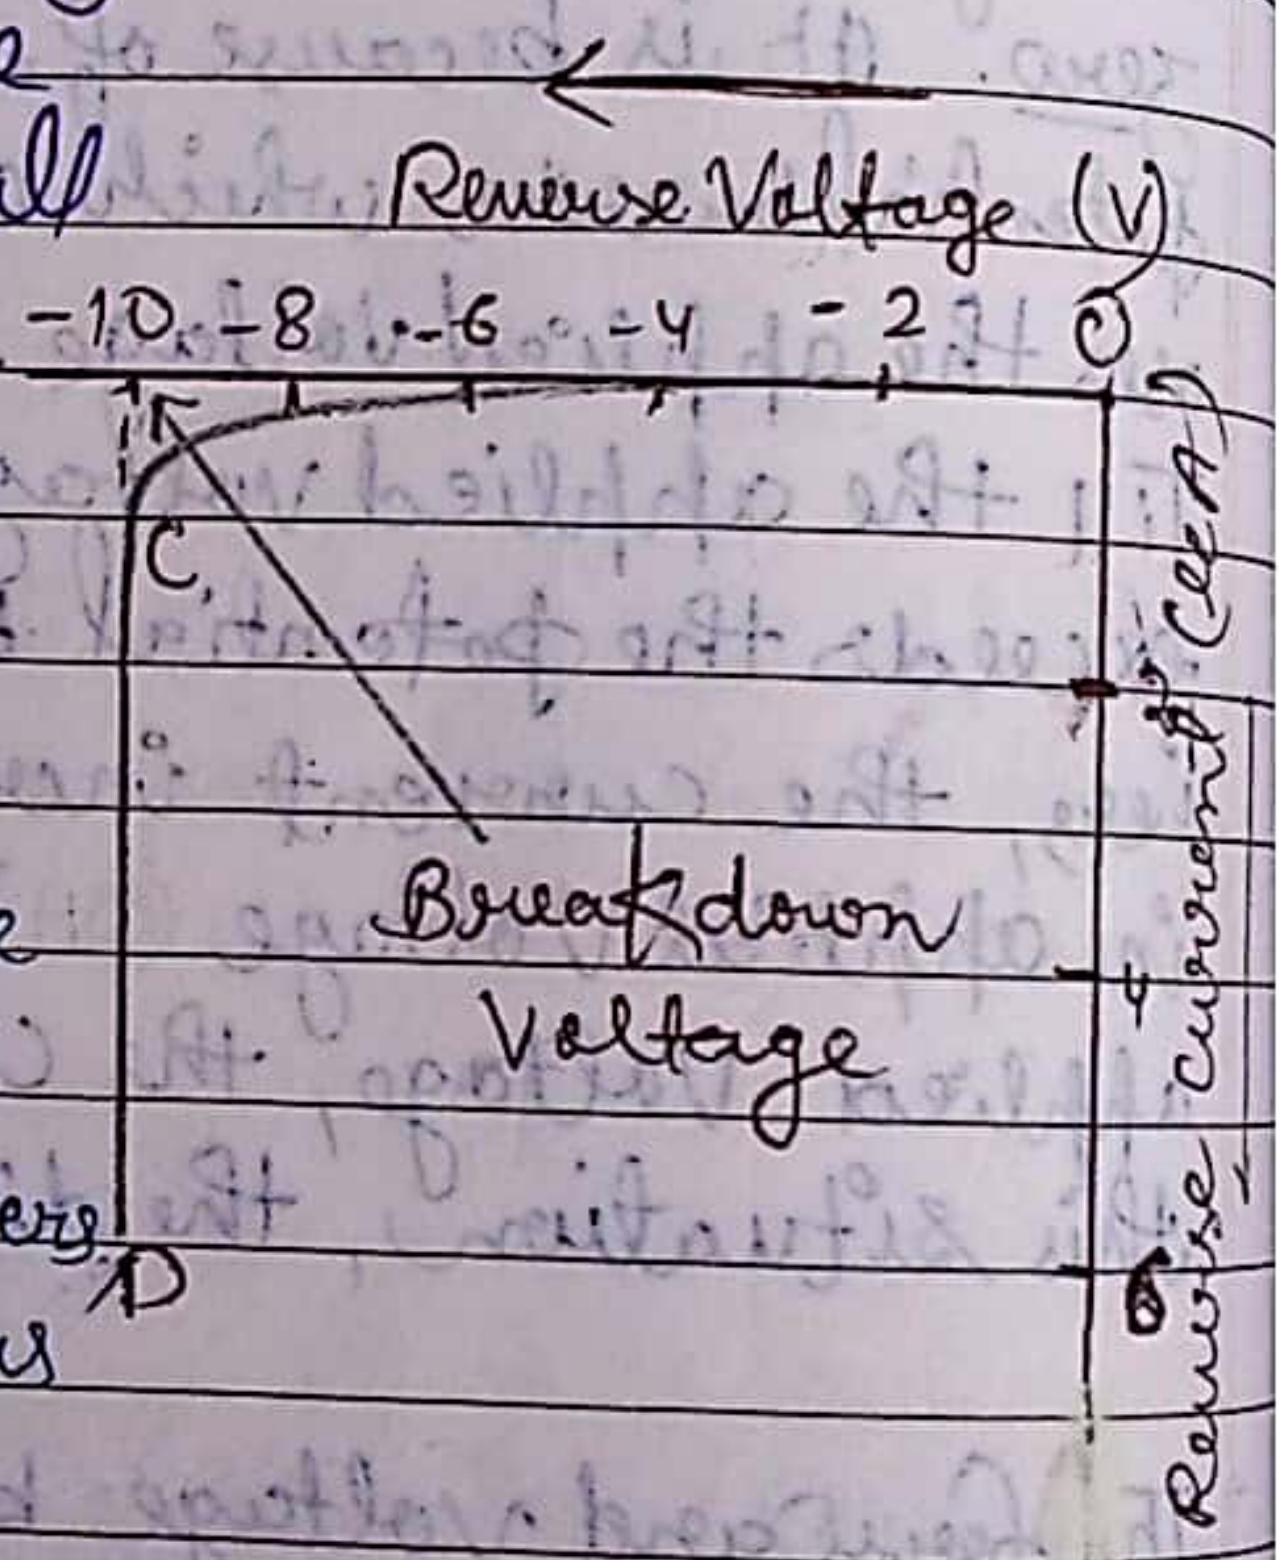 e
all
Reverse Voltage (V)
-10 -8 -6 -4 -2 O
C
2
Breakdown
Voltage
4
6
Reverse Current (μA)
ers
D